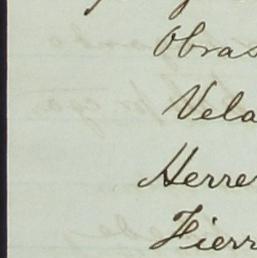 Obras
Vela
Herrer
Fierr